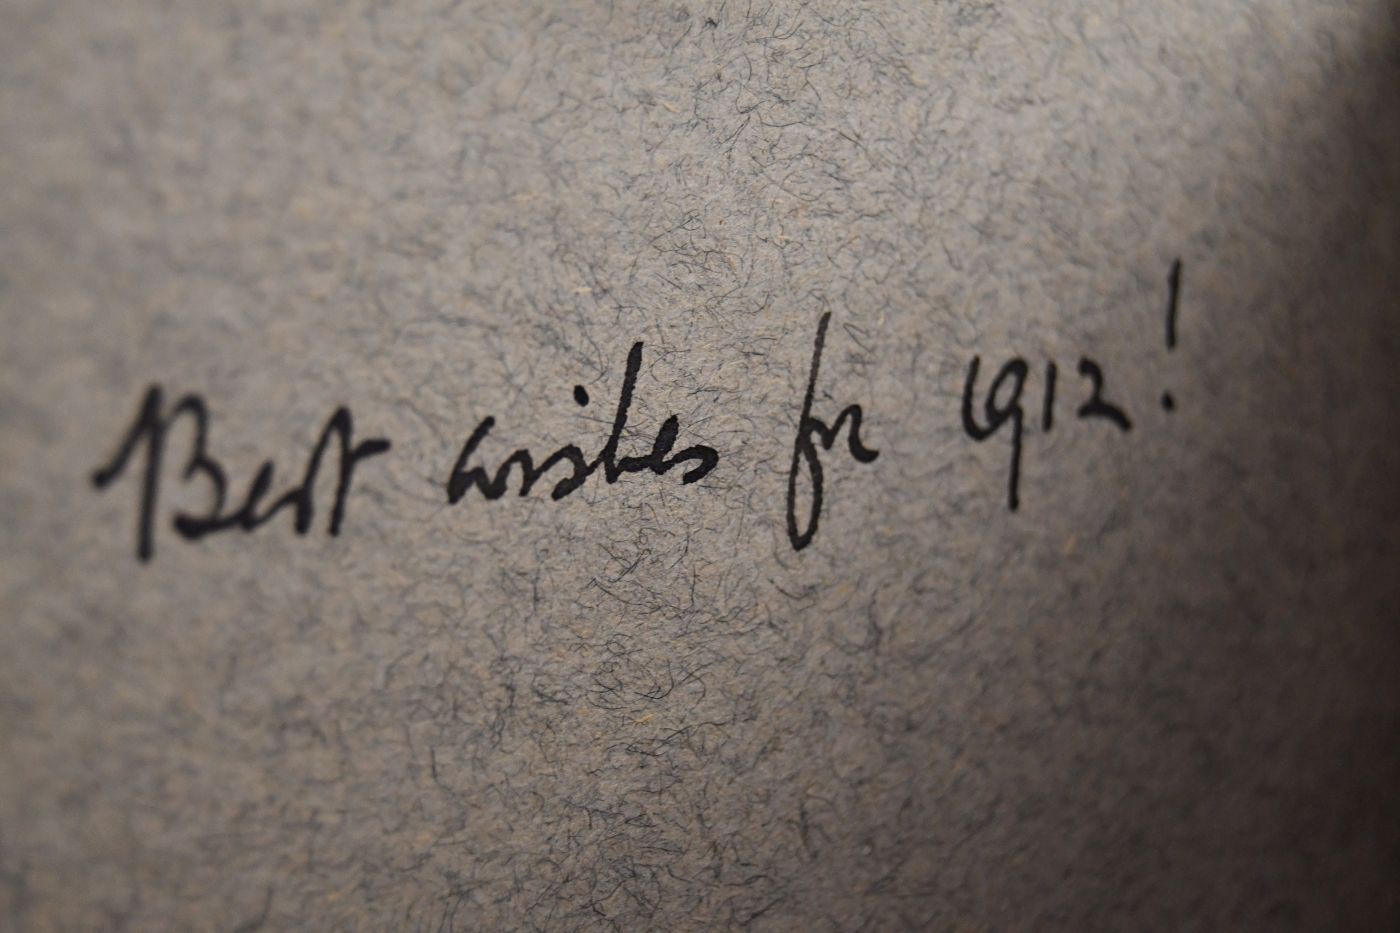 Best wishes for 1912!